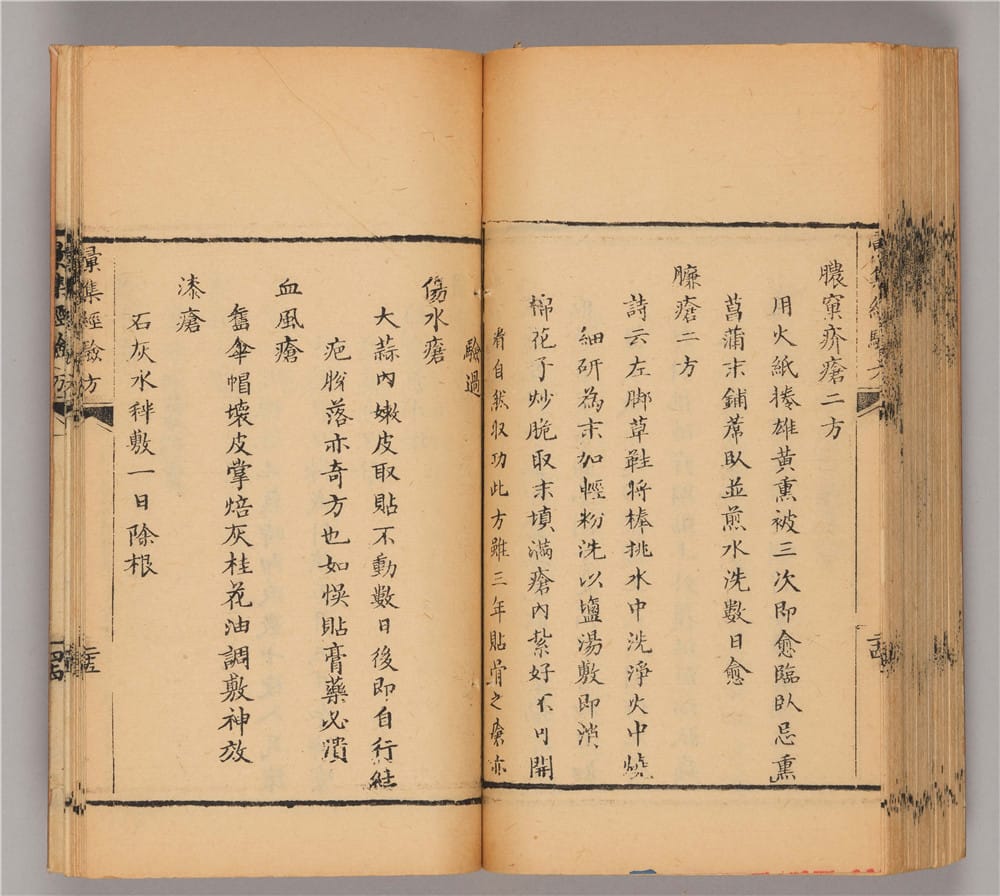 膿窠疥瘡二方
用火紙捲雄黃熏被三次即愈臨臥忌熏
菖蒲末鋪蓆臥並煎水洗數日愈
臁瘡二方
詩云左脚草鞋將棒挑水中洗淨火中燒
細研為末加輕粉洗以鹽湯敷即消
棉花子炒脆取末填滿瘡內紮好不可開
看自然収功此方雖三年貼骨之瘡亦
驗過
傷水瘡
大蒜內嫩皮取貼不動數日後即自行結
疤脫落亦奇方也如悞貼膏藥必潰
血風瘡
舊傘帽壞皮掌焙灰桂花油調敷神放
漆瘡
石灰水秤敷一日除根
彙集經驗方